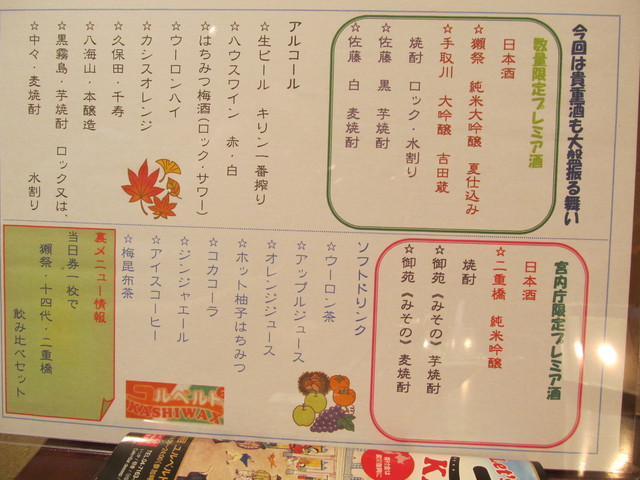 今回は貴重酒も大盤振る舞い
数量限定プレミア酒
日本酒
☆獺祭 純米大吟醸 夏仕込み
☆手取川 大吟醸 吉田蔵
焼酎 ロック・水割り
☆佐藤 黒 芋焼酎
☆佐藤 白 麦焼酎
宮内庁限定プレミア酒
日本酒
☆二重橋 純米吟醸
焼酎
☆御苑《みその》芋焼酎
☆御苑《みその》麦焼酎
アルコール
☆生ビール キリン一番搾り
☆ハウスワイン 赤・白
☆はちみつ梅酒(ロック・サワー)
☆ウーロンハイ
☆カシスオレンジ
☆久保田・千寿
☆八海山・本醸造
☆黒霧島・芋焼酎 ロック又は、
☆中々・麦焼酎 水割り
ソフトドリンク
☆ウーロン茶
☆アップルジュース
☆オレンジジュース
☆ホット柚子はちみつ
☆コカコーラ
☆ジンジャエール
☆アイスコーヒー
☆梅昆布茶
裏メニュー情報
当日券一枚で
獺祭・十四代・二重橋
飲み比べセット
コルベルト
KASHIWA
Let's